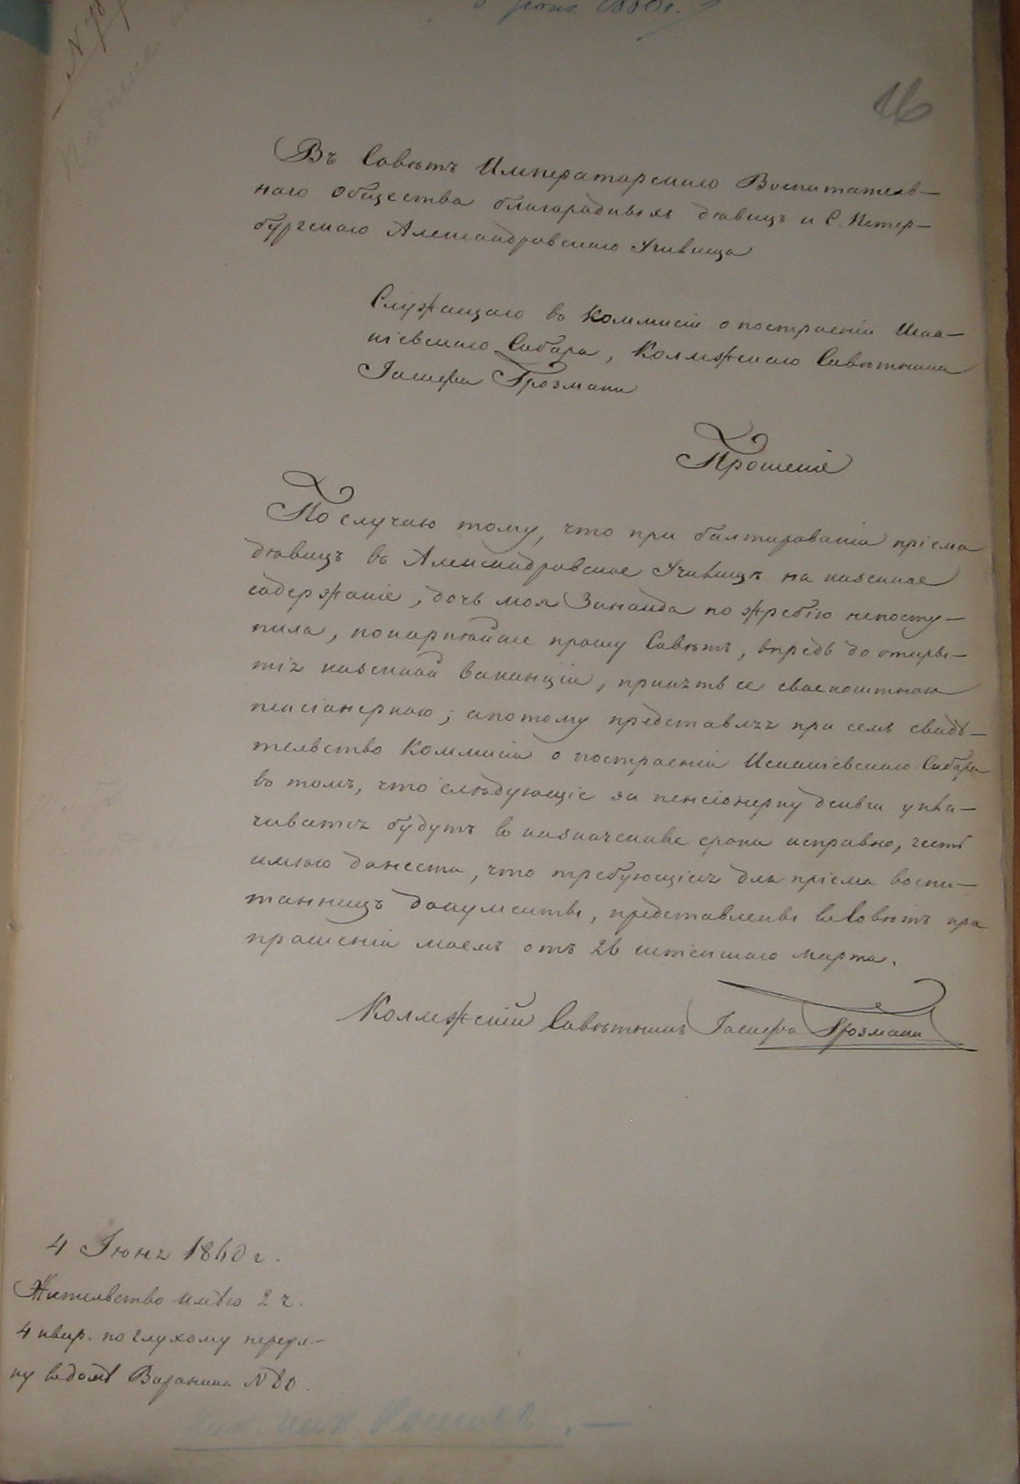 Въ Совѣтъ Императорскаго Воспитатель-
наго Общества благородныхъ дѣвицъ и С. Петер-
бургскаго Александровскаго Училища
Служащаго въ Коммисіи о построеніи Исаа-
кіевскаго Собора, Коллежскаго Совѣтника
Іосифа Грозмани
Прошеніе
По случаю тому, что при балтированіи пріема
дѣвицъ въ Александровское Училище на казенное
содержаніе, дочь моя Зинаида по жребію непосту-
пила, покорнѣйше прошу Совѣтъ, впредь до откры-
тія казенной ваканціи, принять ее своекоштною
пансіонеркою; а потому представляя при семъ свидѣ-
тельство Коммисіи о построеніи Исакіевскаго Собора
въ томъ, что слѣдующіе за пенсіонерку деньги упла-
чиваться будутъ въ назначенные сроки исправно, честь
имѣю донести, что требующіеся для пріема воспи-
танницъ документы, представлены въ Совѣтъ при
прошеніи моемъ отъ 26 истекшаго Марта.
Коллежскій Совѣтникъ Іосифъ Грозмани
4 Іюня 1860 г.
Жительство имѣю 2 ч.
4 квар. по глухому переул-
ку въ домѣ Воронина №